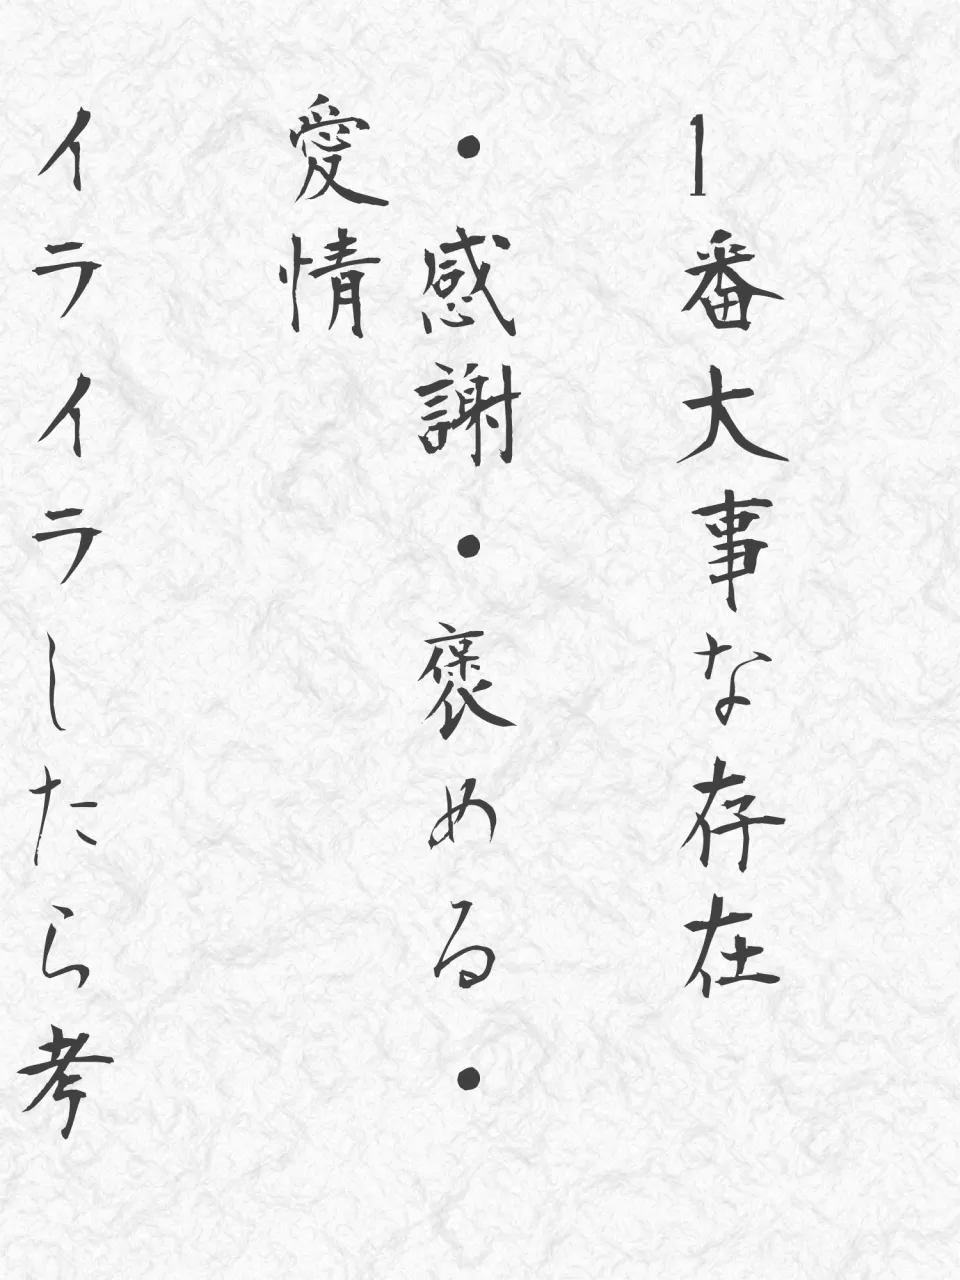 1番大事な存在
・感謝・褒める・
愛情
イライラしたら考